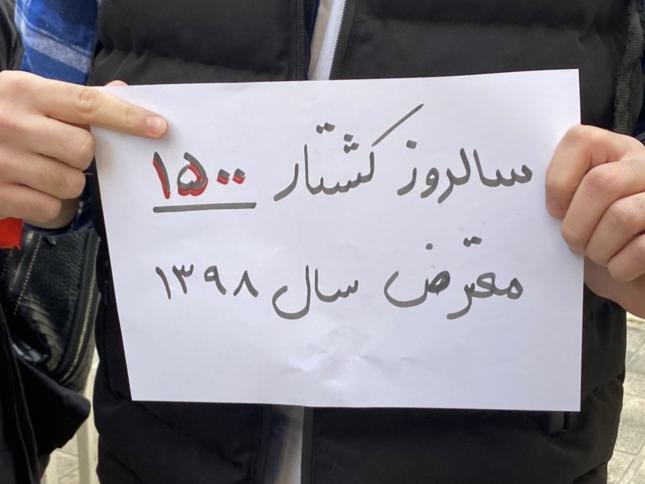 سالروز کشتار ۱۵۰۰
معترض سال ۱۳۹۸